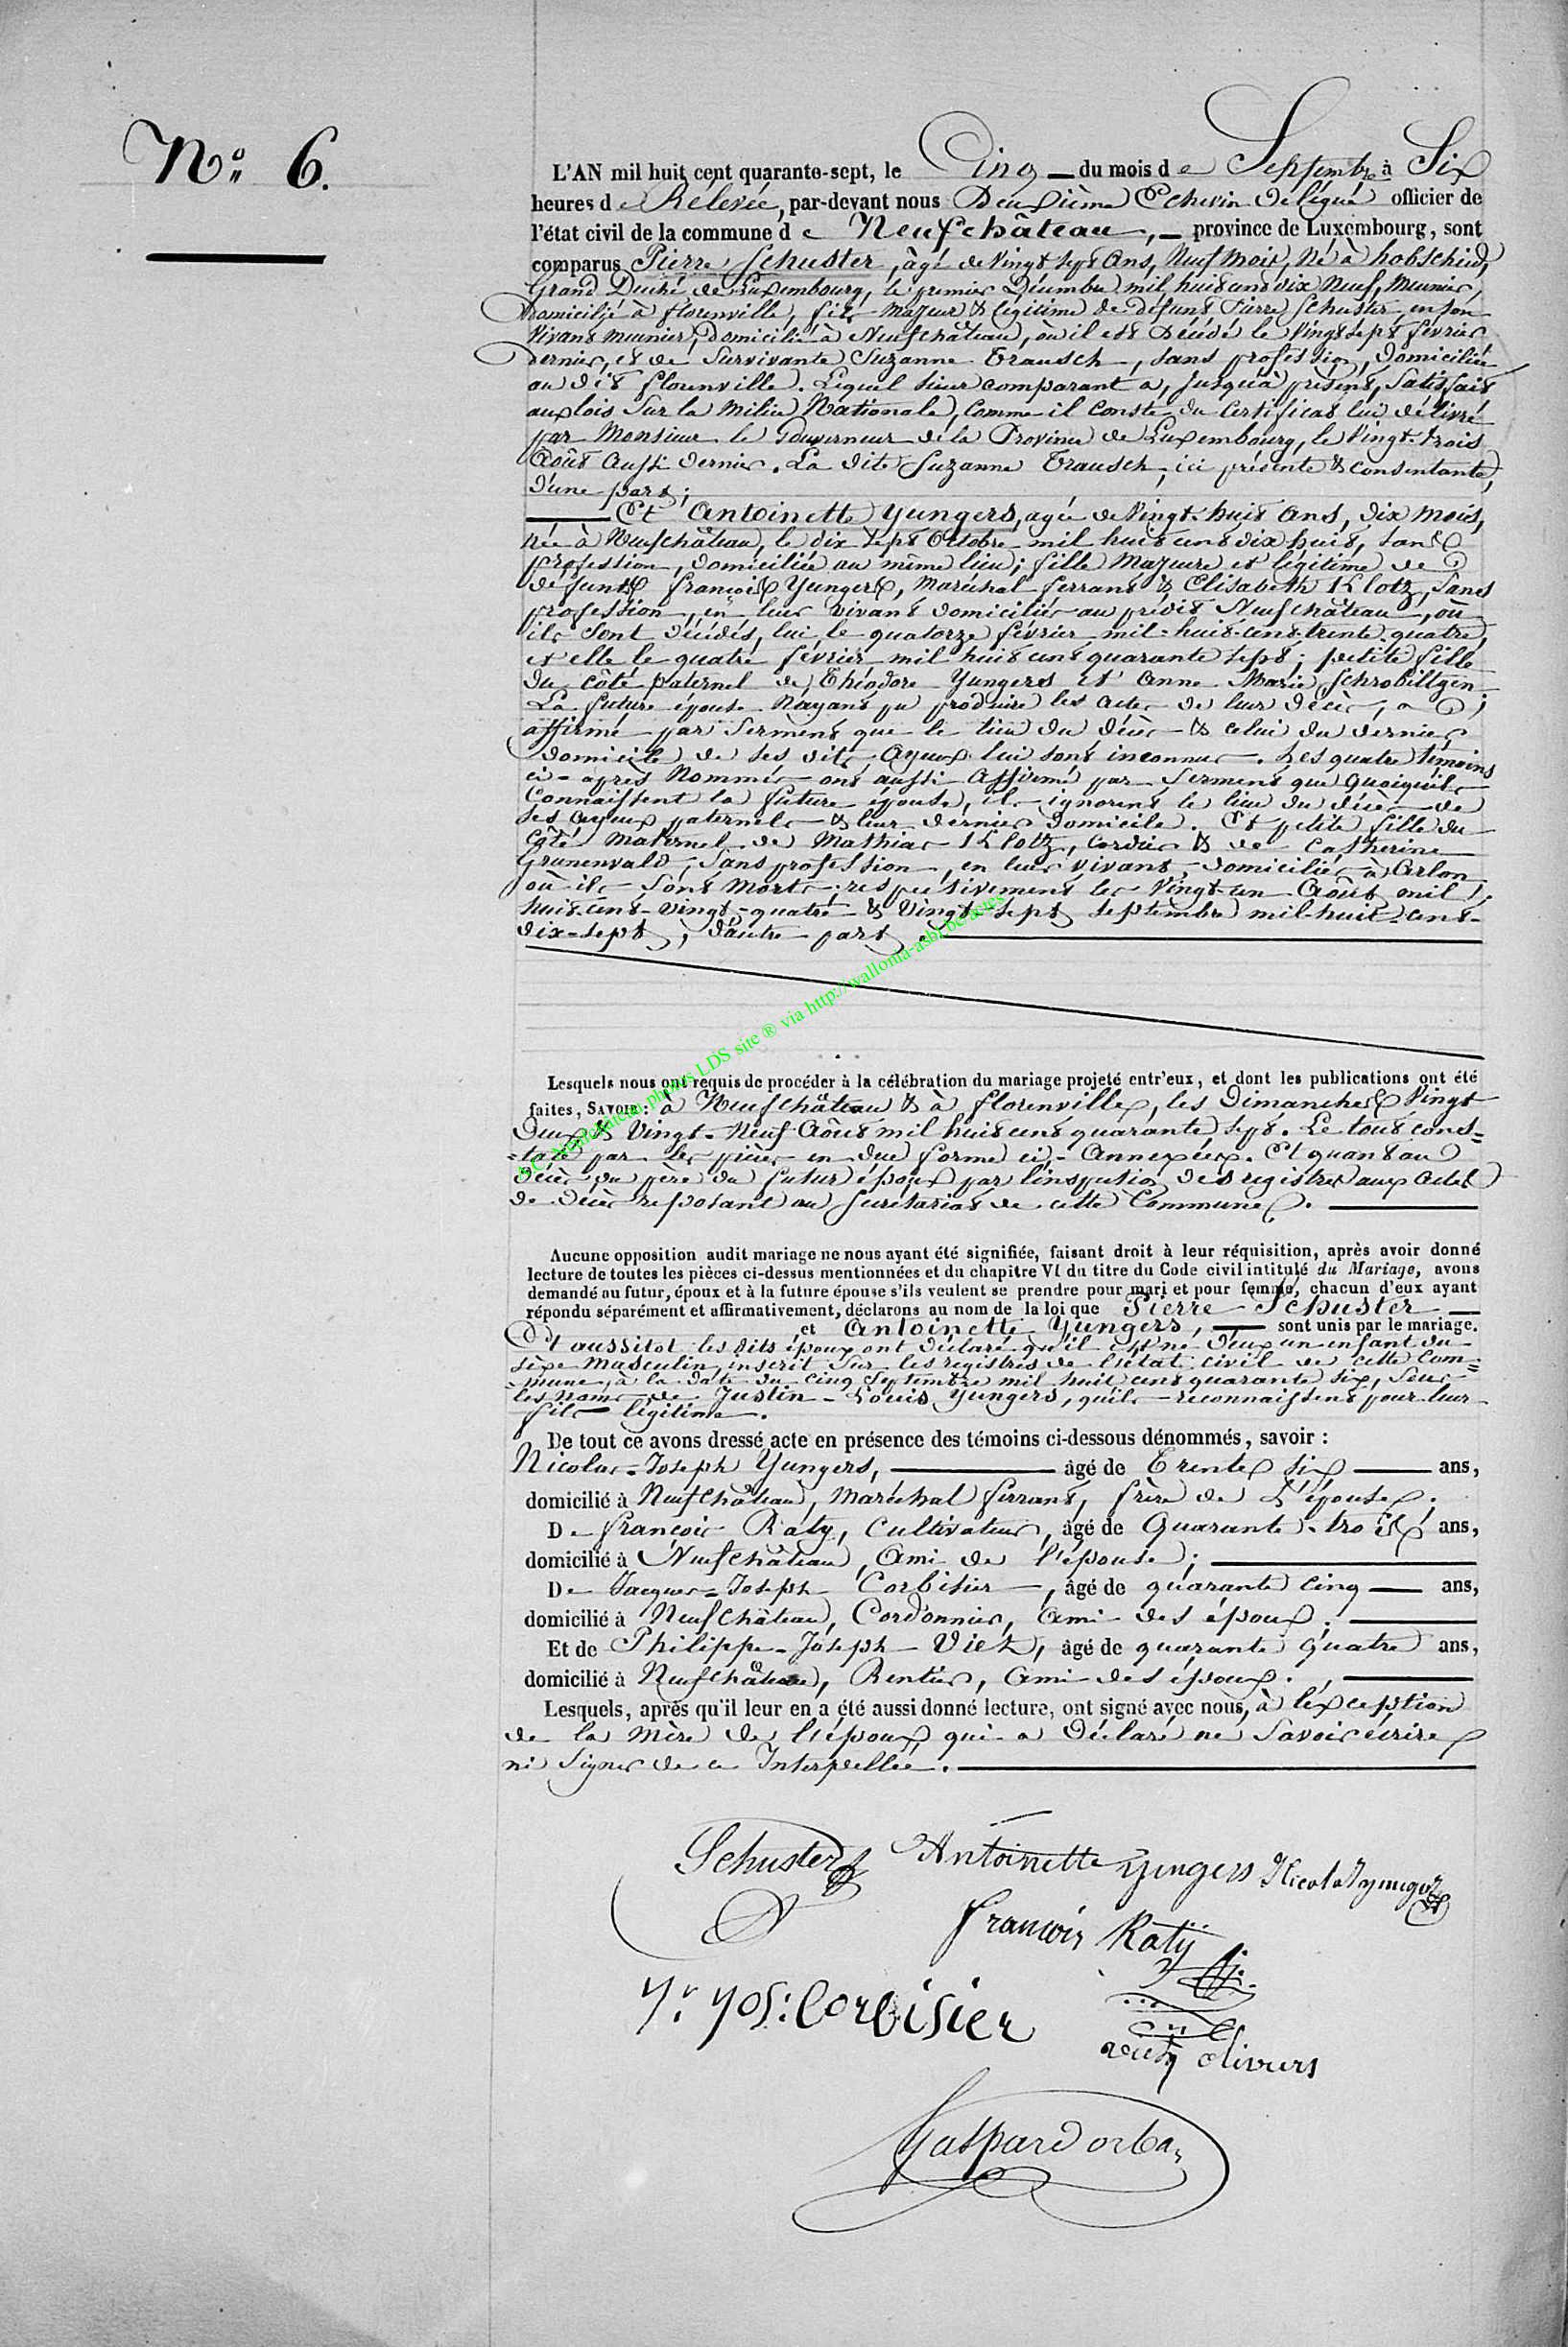 N° 6.
L'AN mil huit cent quarante-sept, le Cinq du mois de Septembre à Six
heures de Rélevée, par-devant nous Deuxième Echevin Délégué officier de
l'état civil de la commune de Neufchâteau, province de Luxembourg, sont
comparus Pierre Schuster, âgé de Vingt sept Ans, Neuf Mois, Né à hobscheid,
Grand Duché de Luxembourg, le premier Décembre mil huit cent dix Neuf, Meunier,
Domicilié à florenville, fils Majeur & légitime de défunt Pierre Schuster en son
Vivant meunier, domicilié à Neufchâteau, où il est Décédé le Vingt sept février
dernier, et de Survivante Suzanne Trausch, sans profession, domiciliée
au dit florenville. Lequel sieur comparant a, jusqu'à présent, Satisfait
aux lois Sur la Milice Nationale, comme il conste du Certificat lui délivré
par Monsieur le Gouverneur de la Province de Luxembourg, le Vingt-trois
Août Aussi dernier. La dite Suzanne Trausch, ici présente & consentante,
d'une part;
Et Antoinette Yungers, agée de Vingt-huit ans, dix mois,
née à Neufchâteau, le dix sept Octobre mil huit cent dix huit, sans
profession, domiciliée au même lieu; fille Majeure et légitime de
defunts françois Yungers, Maréchal ferrant & Elisabeth Klotz, Sans
profession, en leur vivant domiciliés au prédit Neufchâteau, où
ils sont décédés, lui le quatorze février mil-huit-cent-trente-quatre,
et elle le quatre février mil huit cent quarante sept; petite fille
du côté paternel de Théodore Yungers et Anne Marie Schrobiltgen.
La future épouse N'ayant pu produire les actes de leur décès, a
affirmé par serment que le lieu du décès & celui du dernier
Domicile de ses dits Ayeux lui sont inconnus. Les quatre témoins
ci-après Nommés ont aussi affirmé par serment que quoiqu'ils
Connaissent la future épouse, ils ignorent le lieu du décès de
ses ayeux paternels & leur dernier domicile. Et petite fille du
Côté Maternel de Mathias Klotz, cordier & de Catherine
Grunenvald, Sans profession, en leur vivant domiciliés à Arlon
où ils Sont Morts respectivement les Vingt-un Août mil
huit-cent-vingt-quatre & Vingt-sept septembre mil-huit-cent-
dix-sept, d'autre part.
EC Neufchâteau photos LDS site ® via http://wallonia-asbl.be actes
Lesquels nous ont requis de procéder à la célébration du mariage projeté entr'eux, et dont les publications ont été
faites, SAVOIR: à Neufchâteau & à florenville, les Dimanches Vingt
Deux & Vingt-Neuf Août mil huit cent quarante sept. Le tout cons=
=taté par les pièces en due forme ci-Annexées. Et quant au
décès du père du futur époux par l'inspection des registres aux Actes
de décès reposant au Secrétariat de cette Commune.
Aucune opposition audit mariage ne nous ayant été signifiée, faisant droit à leur réquisition, après avoir donné
lecture de toutes les pièces ci-dessus mentionnées et du chapitre VI du titre du Code civil intitulé du Mariage, avons
demandé au futur, époux et à la future épouse s'ils veulent se prendre pour mari et pour femme, chacun d'eux ayant
répondu séparément et affirmativement, déclarons au nom de la loi que Pierre Schuster
et Antoinette Yungers, sont unis par le mariage.
Et aussitot les dits époux ont déclaré qu'il est né d'eux un enfant du
sèxe Masculin, inscrit sur les registres de l'état civil de cette com=
=mune, à la date du cinq Septembre mil huit cent quarante six, sous
les noms de Justin-Louis Yungers, qu'ils reconnaissent pour leur
fils légitime.
De tout ce avons dressé acte en présence des témoins ci-dessous dénommés, savoir :
Nicolas-Joseph Yungers, âgé de Trente six ans,
domicilié à Neufchâteau, Maréchal ferrant, frère de L'épouse;
De françois Raty, Cultivateur, âgé de Quarante-trois ans,
domicilié à Neufchâteau, Ami de l'épouse;
De Jacques-Joseph Corbisier, âgé de quarante cinq ans,
domicilié à Neufchâteau, Cordonnier, Ami des époux;
Et de Philippe-Joseph Vietz, âgé de quarante quatre ans,
domicilié à Neufchâteau, Rentier, Ami des époux.
Lesquels, après qu'il leur en a été aussi donné lecture, ont signé avec nous, à l'exception
de la Mère de l'époux qui a Déclaré ne Savoir écrire
ni Signer de ce Interpellée.
Schuster Antoinette yungers Nicolas yungers
francois Raty
Jos: Corbisier
Gaspard orban